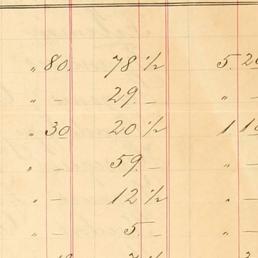 " 80. 78 1/2 5. 20
" — 29. — " —
" 30 20 1/2 1 18
" — 59. — " —
" — 12 1/2 " —
" — 5 — " —